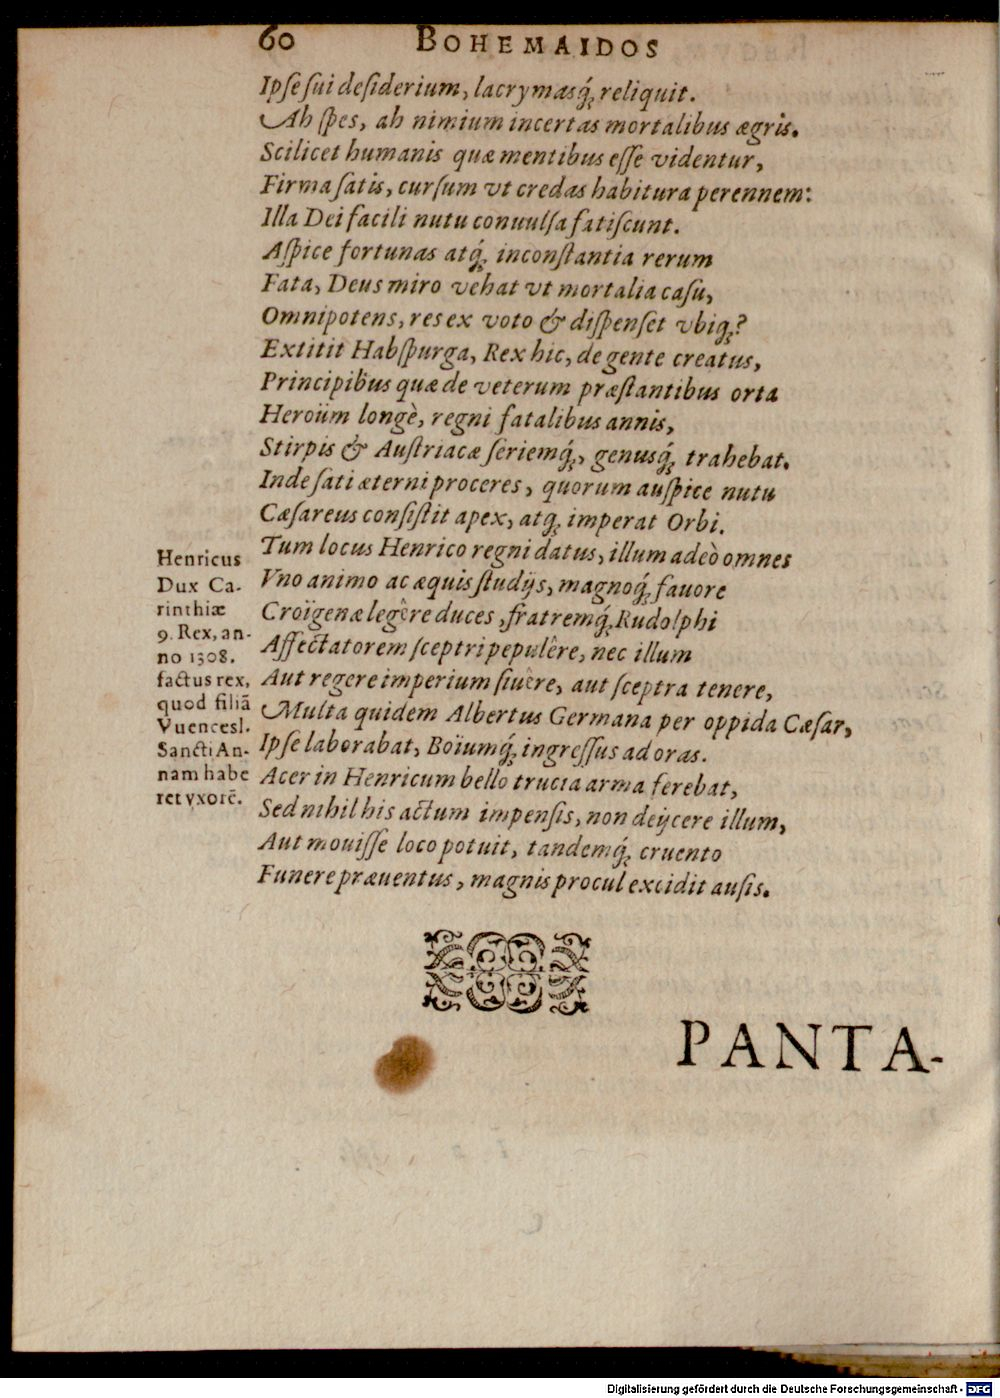 60 BOHEMAIDOS
Ipse sui desiderium, lacrymasq́; reliquit.
Ah spes, ah nimium incertas mortalibus ægris.
Scilicet humanis quæ mentibus esse videntur,
Firma satis, cursum vt credas habitura perennem:
Illa Dei facili nutu conuulsa fatiscunt.
Aspice fortunas atq́; inconstantia rerum
Fata, Deus miro vehat vt mortalia casu,
Omnipotens, res ex voto & dispenset vbiq;?
Extitit Habspurga, Rex hic, de gente creatus,
Principibus quæ de veterum præstantibus orta
Heroüm longè, regni fatalibus annis,
Stirpis & Austriacæ seriemq́;, genusq́; trahebat.
Inde sati æterni proceres, quorum auspice nutu
Cæsareus consistit apex, atq; imperat Orbi.
Tum locus Henrico regni datus, illum adeò omnes
Vno animo ac æquis studijs, magnoq́; fauore
Croïgenæ legêre duces, fratremq́; Rudolphi
Affectatorem sceptri pepulêre, nec illum
Aut regere imperium siuêre, aut sceptra tenere,
Multa quidem Albertus Germana per oppida Cæsar,
Ipse laborabat, Boïumq́; ingressus ad oras.
Acer in Henricum bello trucia arma ferebat,
Sed nihil his actum impensis, non deijcere illum,
Aut mouisse loco potuit, tandemq́; cruento
Funere præuentus, magnis procul excidit ausis.
Henricus
Dux Ca-
rinthiæ
9. Rex, an-
no 1308.
factus rex,
quod filiã
Vuencesl.
Sancti An-
nam habe
ret vxorẽ.
PANTA-
Digitalisierung gefördert durch die Deutsche Forschungsgemeinschaft - DFG